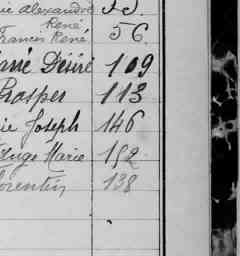 ie Alexandre 55
René
Frances René 56
rré Désiré 109
Prosper 113
ie Joseph 146
Ange Marie 152
lorentin 138